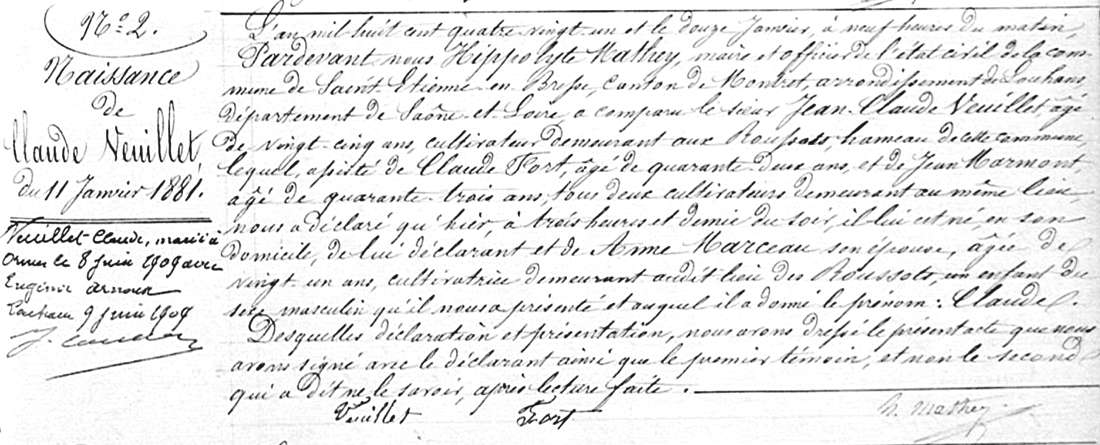 N° 2.
Naissance
de
Claude Veuillet,
du 11 Janvier 1881.
Veuillet Claude, marié à
Ormes le 8 Juin 1909 avec
Eugénie Arnoux
9 Juin 1909
L'an mil huit cent quatre vingt-un et le douze Janvier, à neuf heures du matin,
Pardevant nous Hippolyte Mathey, maire et officier de l'état civil de la com-
mune de Saint Etienne en Bresse, canton de Montret, arrondissement de Louhans,
département de Saône-et-Loire, a comparu le sieur Jean-Claude Veuillet, âgé
de vingt-cinq ans, cultivateur demeurant aux Roussots, hameau de cette commune,
lequel, assisté de Claude Fort, âgé de quarante-deux ans, et de Jean Marmont,
âgé de quarante-trois ans, tous deux cultivateurs demeurant au même lieu,
nous a déclaré qu'hier, à trois heures et demie du soir, il lui est né, en son
domicile, de lui déclarant et de Anne Marceau son épouse, âgée de
vingt un ans, cultivatrice demeurant audit lieu des Roussots, un enfant du
sexe masculin qu'il nous a présenté et auquel il a donné le prénom : Claude.
Desquelles déclaration et présentation, nous avons dressé le présent acte que nous
avons signé avec le déclarant ainsi que le premier témoin, et non le second
qui a dit ne le savoir, après lecture faite.
Veuillet Fort H. Mathey